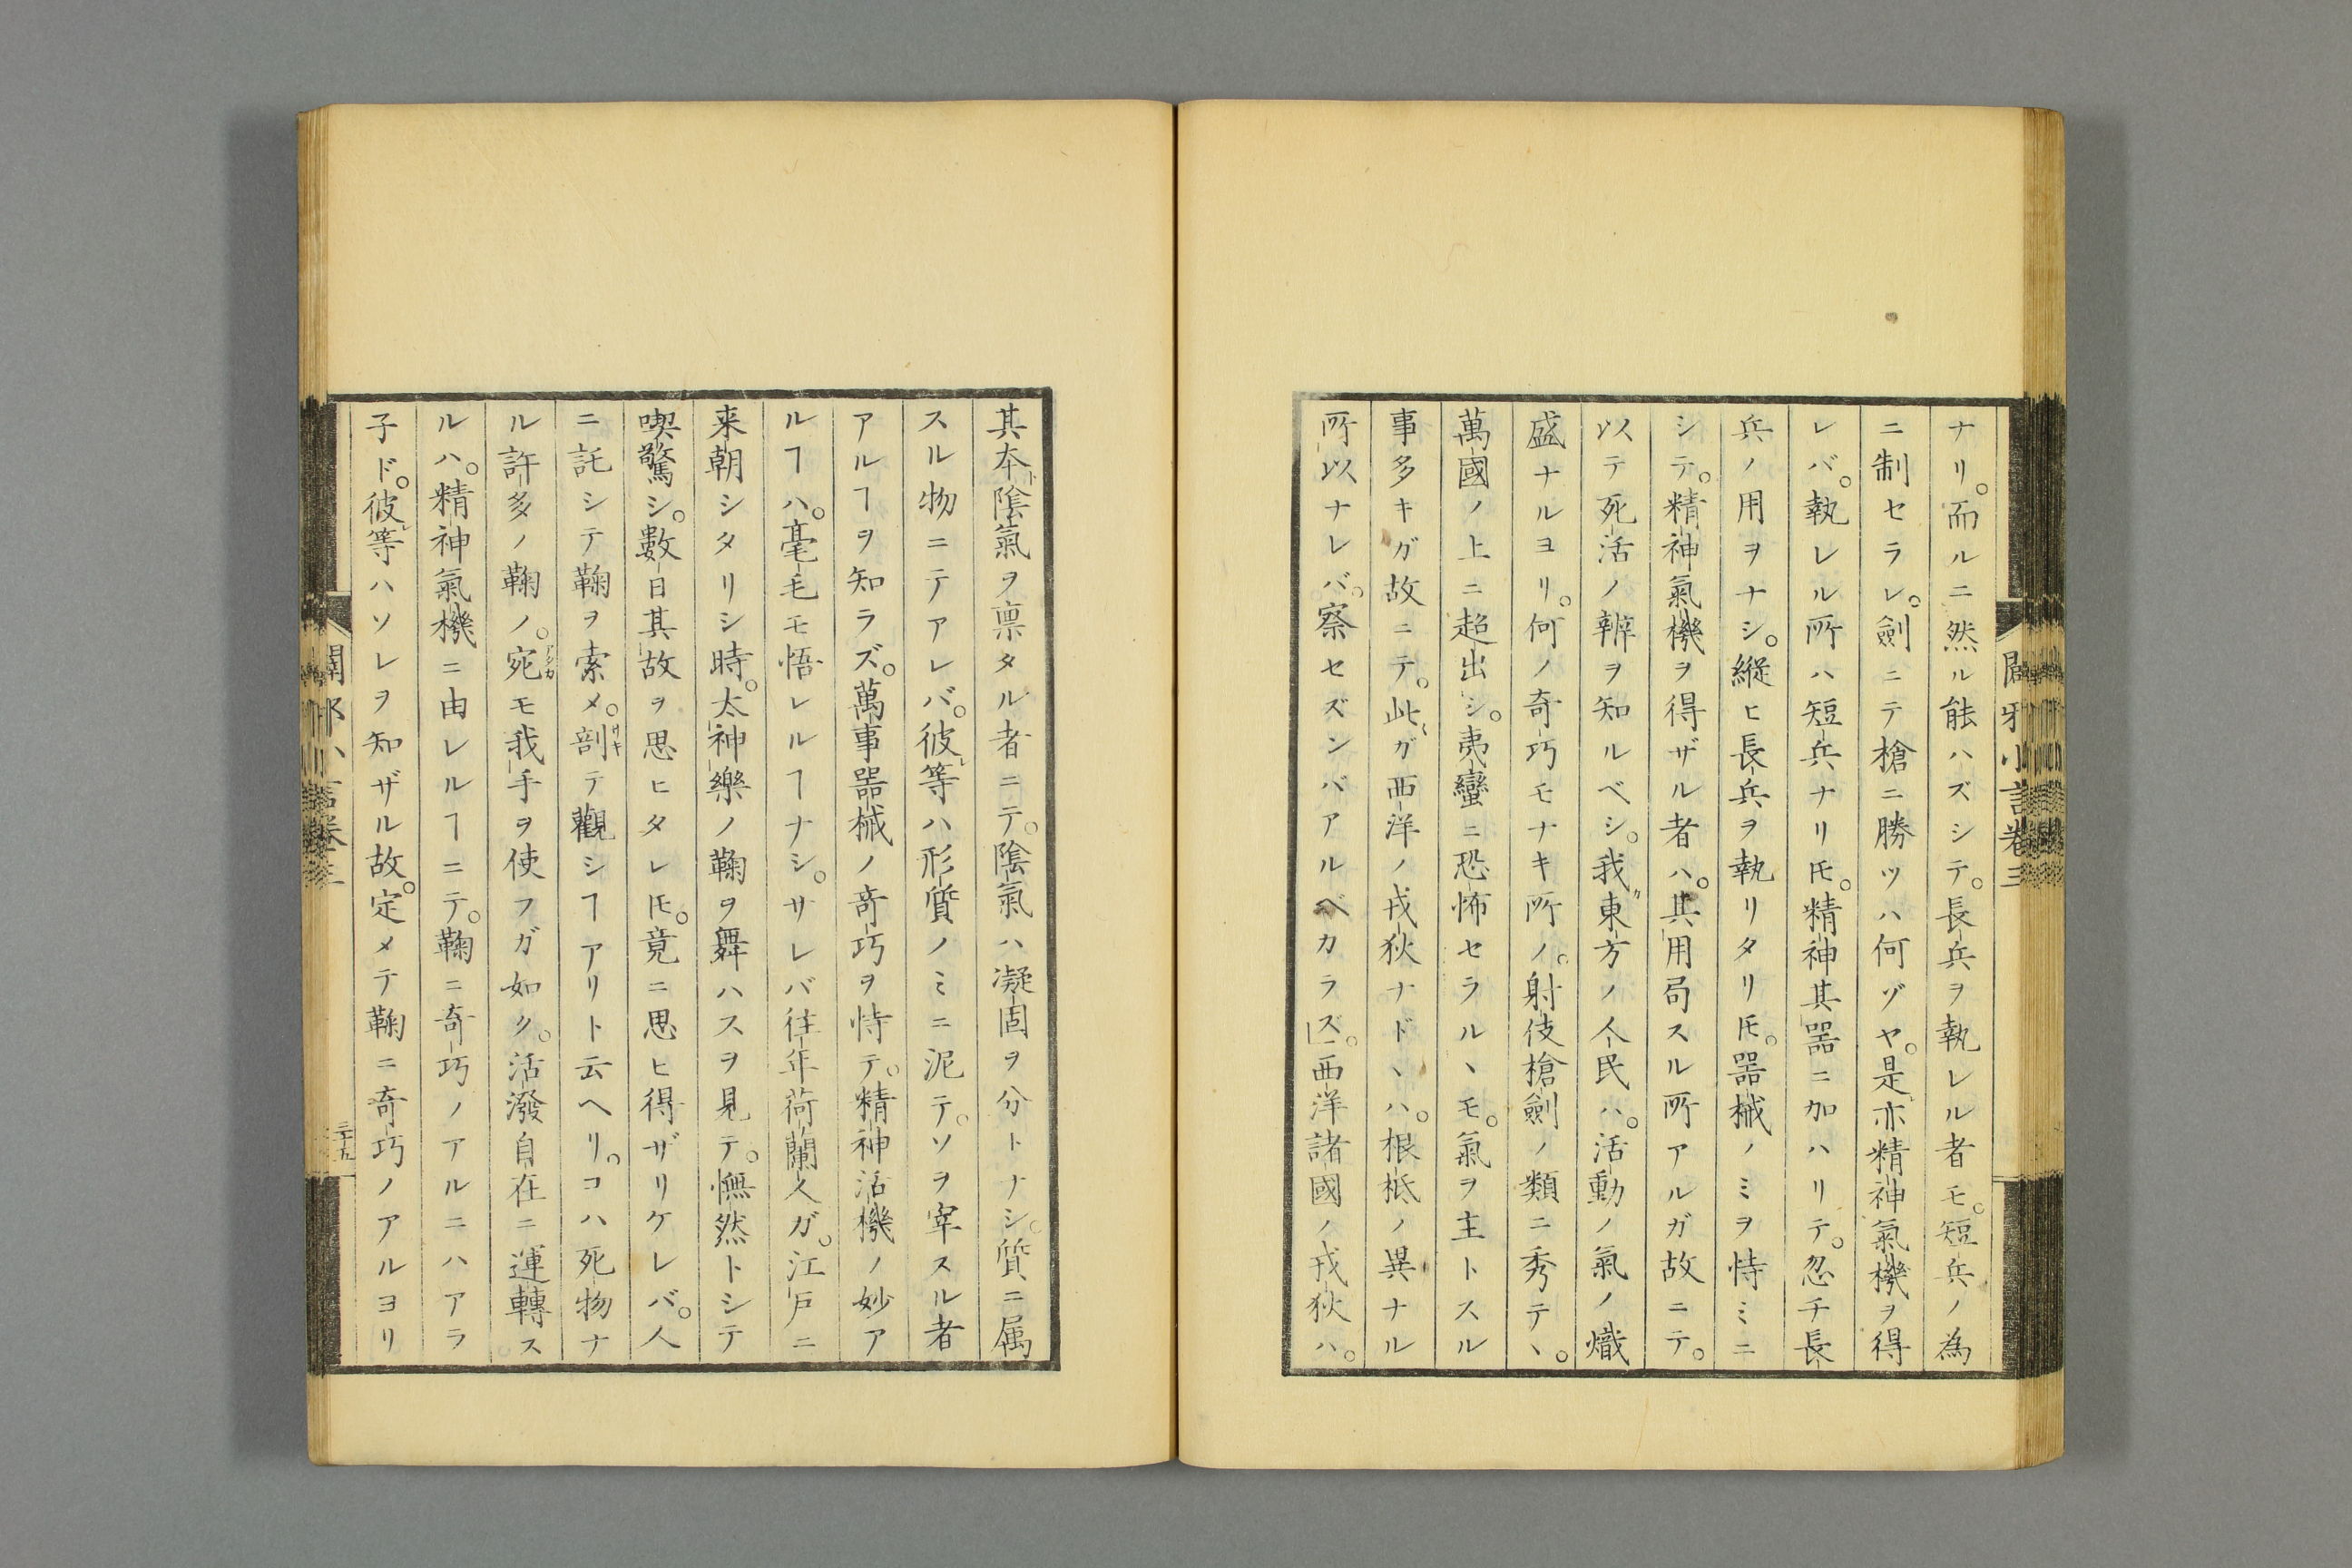 ナリ。而ルニ然ル能ハズシテ。長兵ヲ執レル者モ。短兵ノ為
ニ制セラレ。劍ニテ槍ニ勝ツハ何ゾヤ。是亦精神氣機ヲ得
レバ。執レル所ハ短兵ナリ𪜈。精神其噐ニ加ハリテ。忽チ長
兵ノ用ヲナシ。縦ヒ長兵ヲ執リタリ𪜈。噐械ノミヲ恃ミニ
シテ。精神氣機ヲ得ザル者ハ。其用局スル所アルガ故ニテ。
以テ死活ノ辨ヲ知ルベシ。我東方ノ人民ハ。活動ノ氣ノ熾
盛ナルヨリ。何ノ奇巧モナキ所ノ。射伎槍劍ノ類ニ秀テヽ。
萬國ノ上ニ超出シ。夷蠻ニ恐怖セラルヽモ。氣ヲ主トスル
事多キガ故ニテ。此ガ西洋ノ戎狄ナドヽハ。根柢ノ異ナル
所以ナレバ。察セズンバアルベカラズ。西洋諸國ノ戎狄ハ。
其本陰氣ヲ禀タル者ニテ。陰氣ハ凝固ヲ分トナシ。質ニ属
スル物ニテアレバ。彼等ハ形質ノミニ泥テ。ソヲ宰スル者
アルヿヲ知ラズ。萬事噐械ノ奇巧ヲ恃テ。精神活機ノ妙ア
ルヿハ。毫毛モ悟レルヿナシ。サレバ往年荷蘭人ガ。江戸ニ
来朝シタリシ時。太神樂ノ鞠ヲ舞ハスヲ見テ。憮然トシテ
喫驚シ。數日其故ヲ思ヒタレ𪜈。竟ニ思ヒ得ザリケレバ。人
ニ託シテ鞠ヲ索メ。剖テ觀シヿアリト云ヘリ。コハ死物ナ
ル許多ノ鞠ノ。宛モ我手ヲ使フガ如ク。活潑自在ニ運轉ス
ルハ。精神氣機ニ由レルヿニテ。鞠ニ奇巧ノアルニハアラ
子ド。彼等ハソレヲ知ザル故。定メテ鞠ニ奇巧ノアルヨリ
三十五